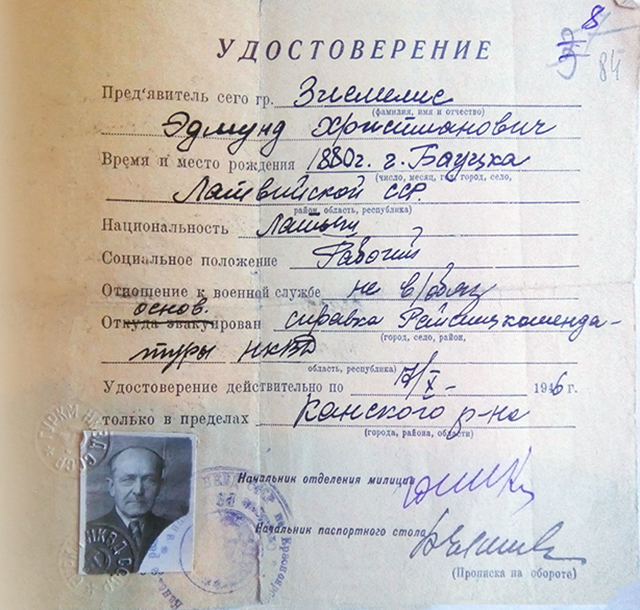 8
84
УДОСТОВЕРЕНИЕ
Пред'явитель сего гр. Зиемелис
(фамилия, имя и отчество)
Эдмунд Христианович
Время и место рождения 1880г. г. Бауцка
(число, месяц, год, город, село,
Латвийской ССР.
район, область, республика)
Национальность Латыш
Социальное положение Рабочий
Отношение к военной службе не в/обяз
основ.
Откуда эвакуирован справка Райспецкоменда-
(город, село, район,
туры НКВД
область, республика)
Удостоверение действительно по 7/X- 1946 г.
только в пределах Канского р-на
(города, района, области)
Начальник отделения милиции
Начальник паспортного стола
(Прописка на обороте)